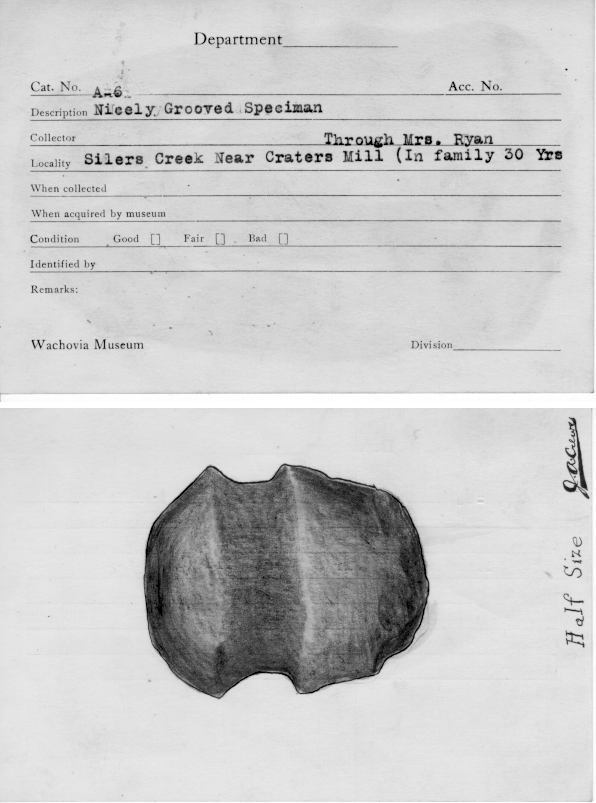 Department
Cat. No. A-6 Acc. No.
Description Nicely Grooved Speciman
Collector Through Mrs. Ryan
Locality Silers Creek Near Craters Mill (In family 30 Yrs
When collected
When acquired by museum
Condition Good [] Fair [] Bad []
Identified by
Remarks:
Wachovia Museum Division
Half Size